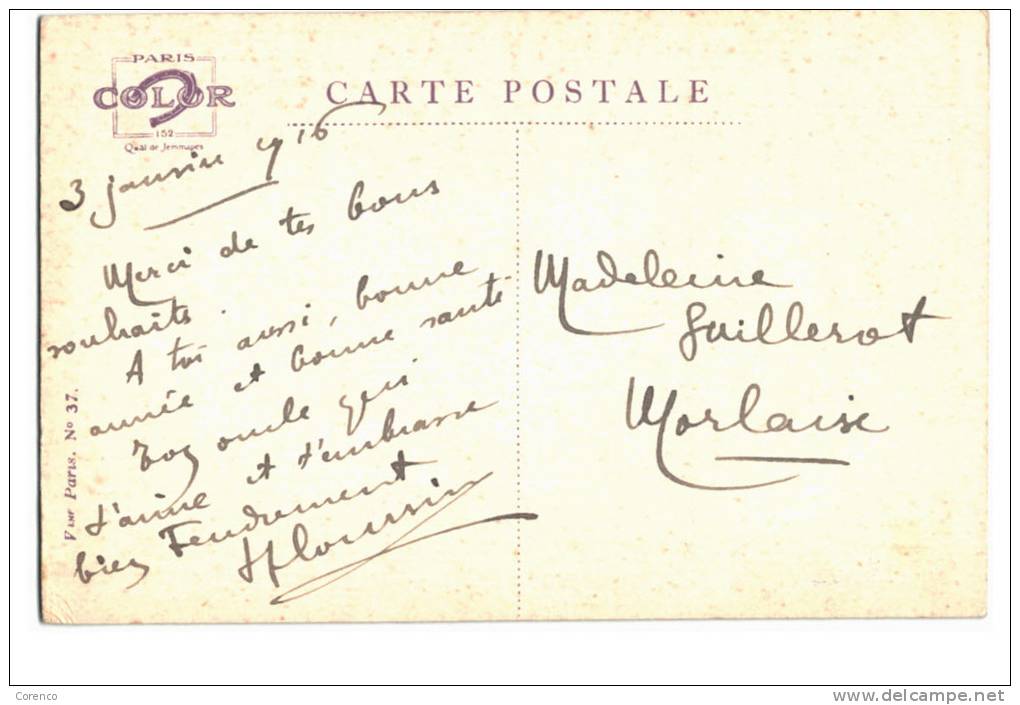 PARIS
COLOR
152
Quai de Jemmapes
CARTE POSTALE
3 janvier 1916
Merci de tes bons
souhaits.
A toi aussi, bonne
année et bonne santé
Ton oncle qui
t'aime et t'embrasse
bien Tendrement
Madeleine
Guillerot
Morlaise
Visé Paris. No 37.
Corenco
www.delcampe.net